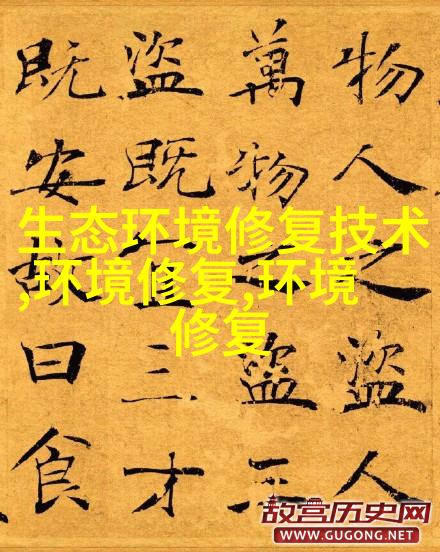 物人之盜人
萬物之盜三
盜既宜三才
既安故曰食
生态环境修复技术
,环境修复,环境
修复
故宫历史网
WWW.GUGONG.NET